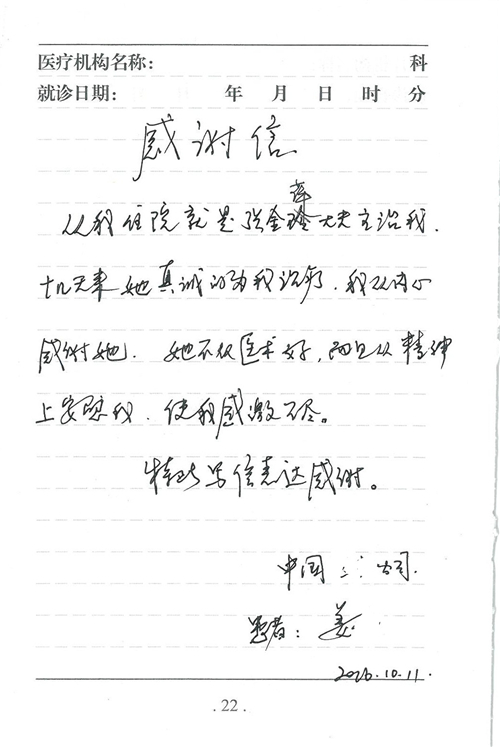 医疗机构名称： 科
就诊日期： 年 月 日 时 分
感谢信
从我住院就是张金萍大夫主治我．
十几天来她真诚的为我治病．我从内心
感谢她．她不仅医术好，而且从精神
上安慰我．使我感激不尽。
特此写信表达感谢。
中国 公司．
患者：姜
10.11.
. 22 .